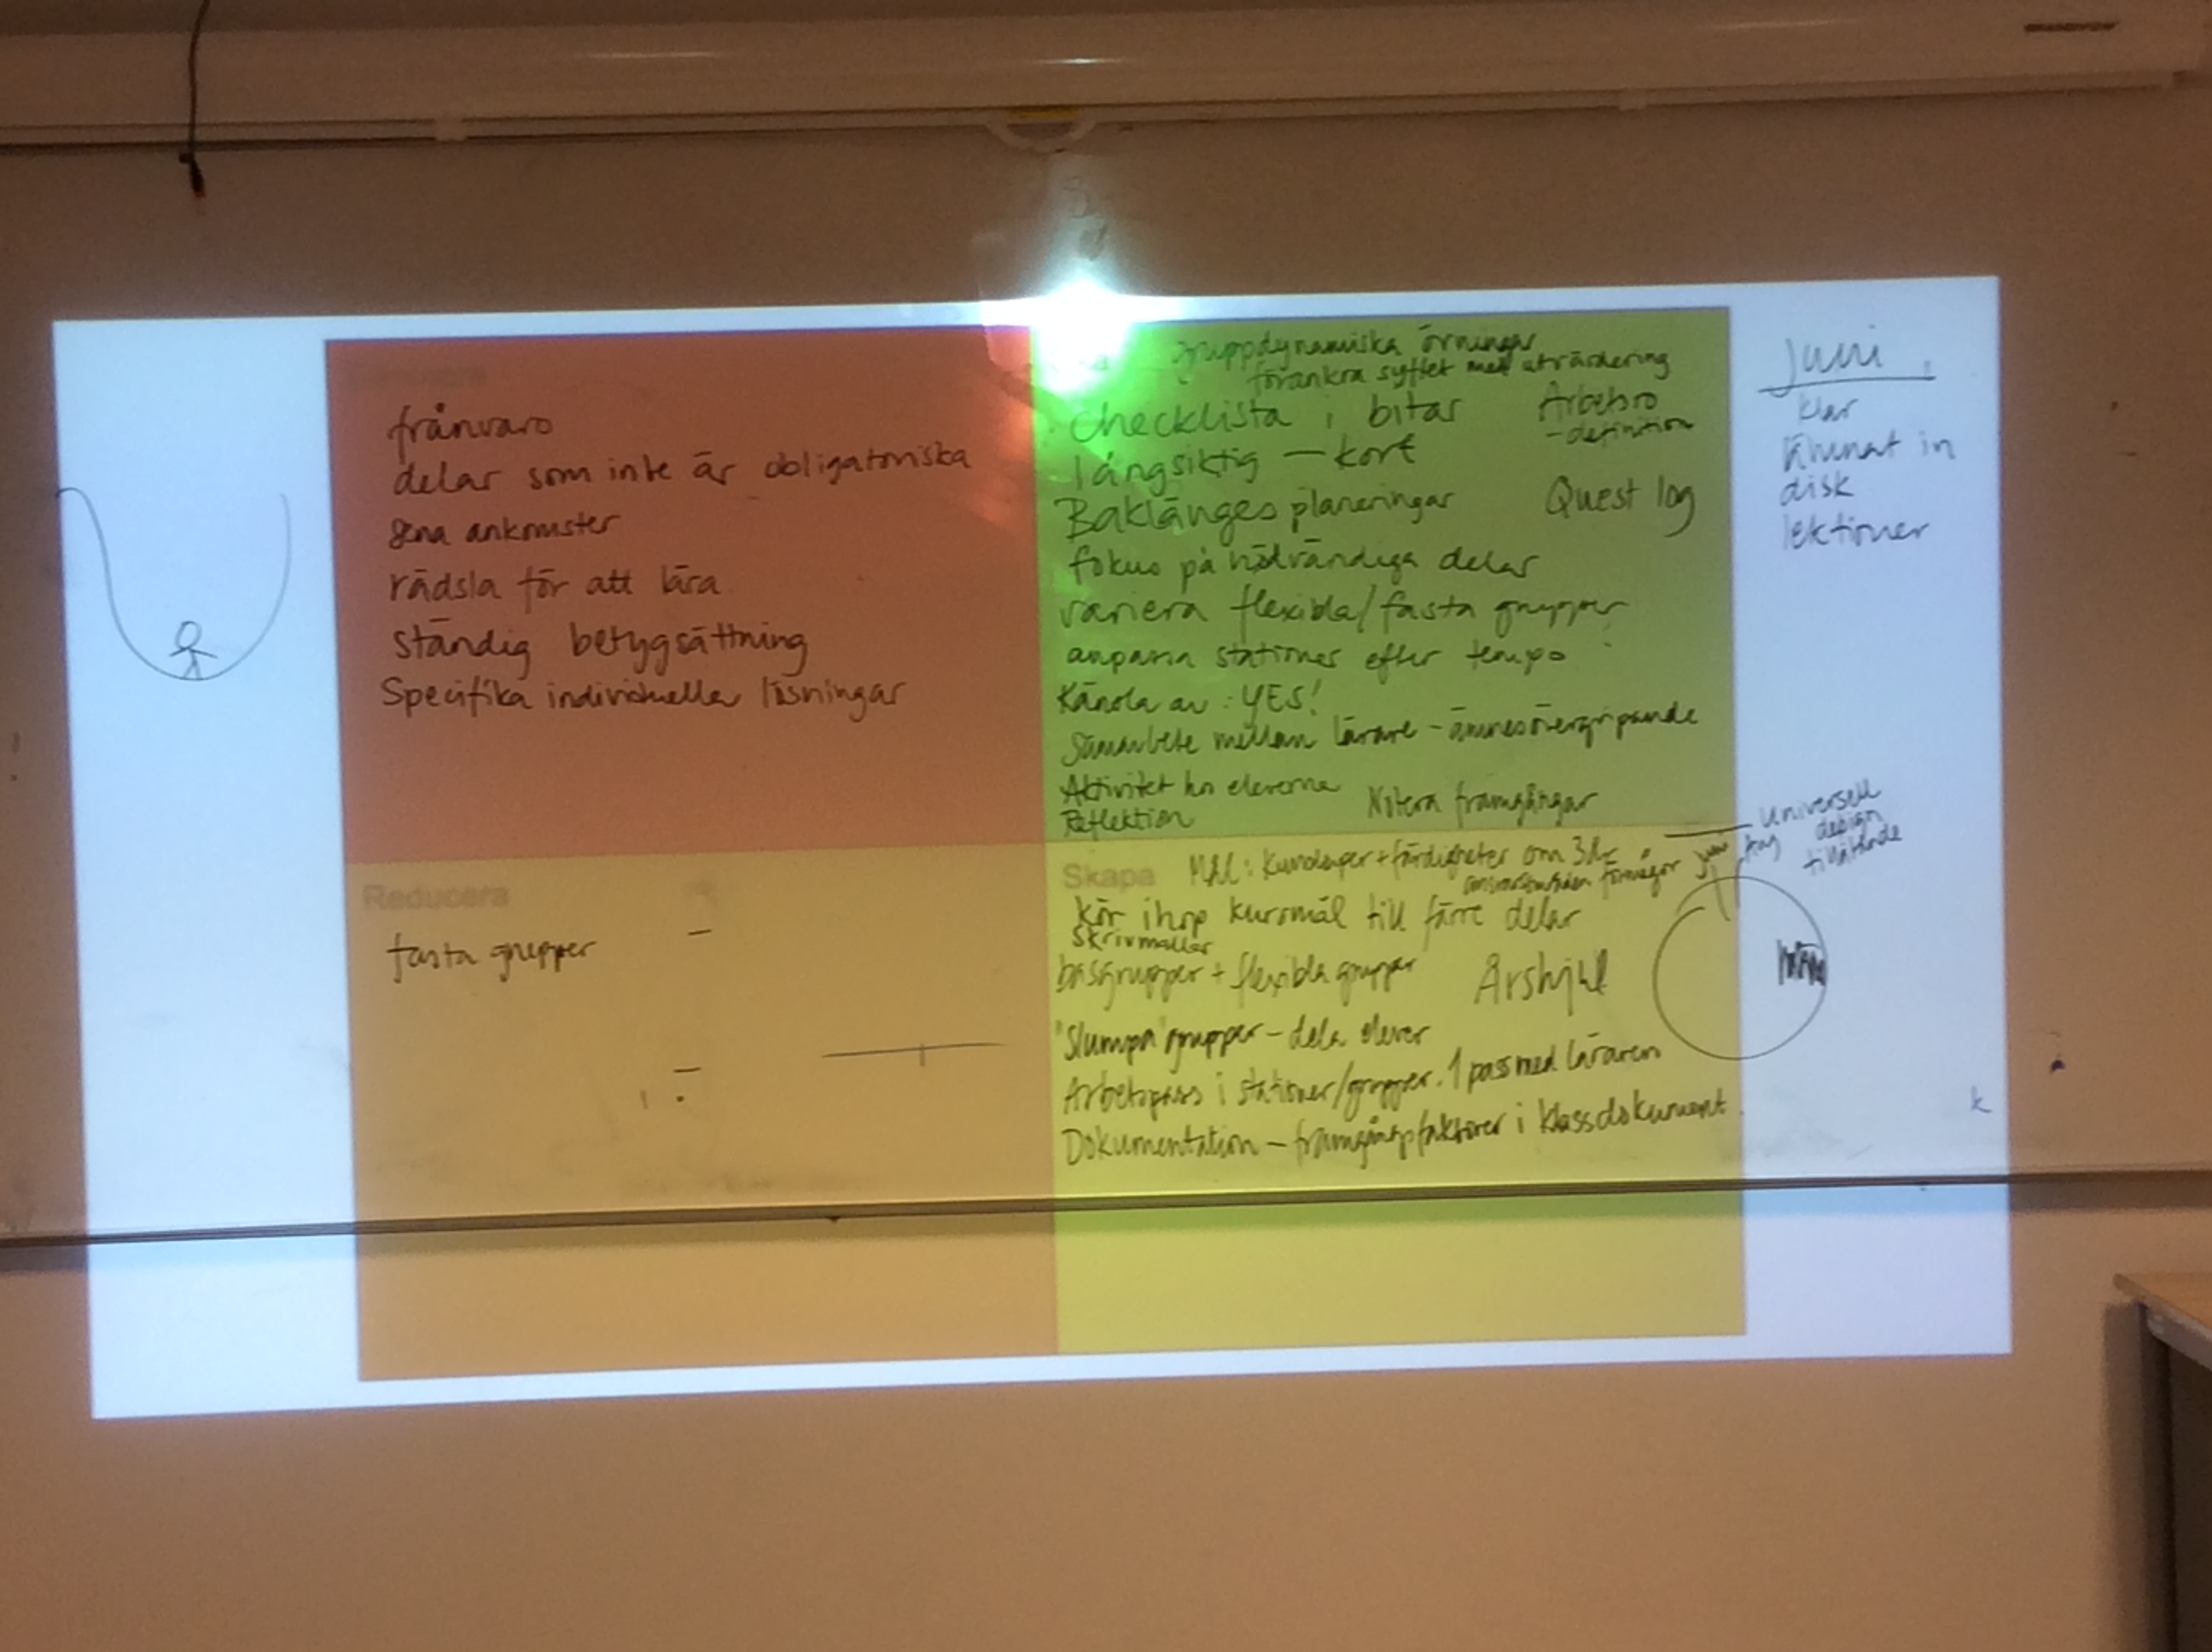 Eliminera
frånvaro
delar som inte är obligatoriska
sena ankomster
rädsla för att lära
ständig betygsättning
Specifika individuella lösningar
gruppdynamiska övningar
förankra syftet med utvärdering
checklista i bitar
Arbetsro
-definition
långsiktig – kort
Baklänges planeringar
Quest log
fokus på nödvändiga delar
variera flexibla/fasta grupper
anpassa stationer efter tempo
Känsla av : YES!
Samarbete mellan lärare - ämnesövergripande
Aktivitet hos eleverna
Notera framgångar
Reflektion
juni
klar
lämnat in
disk
lektioner
Reducera
fasta grupper
Skapa
Mål: Kunskaper + färdigheter om 3 år
förmågor
kör ihop kursmål till färre delar
Skrivmallar
basgrupper + flexibla grupper
Årshjul
"Slumpa" grupper – dela elever
Arbetspass i stationer/grupper. 1 pass med läraren
Dokumentation – framgångsfaktorer i klassdokument
Universell
design
tillåtande
juni
aug
k